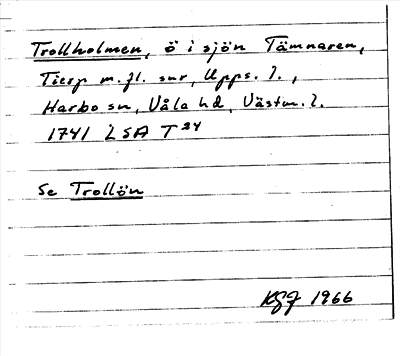 Trollholmen, ö i sjön Tämnaren,
Tierp m.fl. snr, Upps. l.,
Harbo sn, Våla hd, Västm. l.
1741 LSA T 24
Se Trollön
KGJ 1966